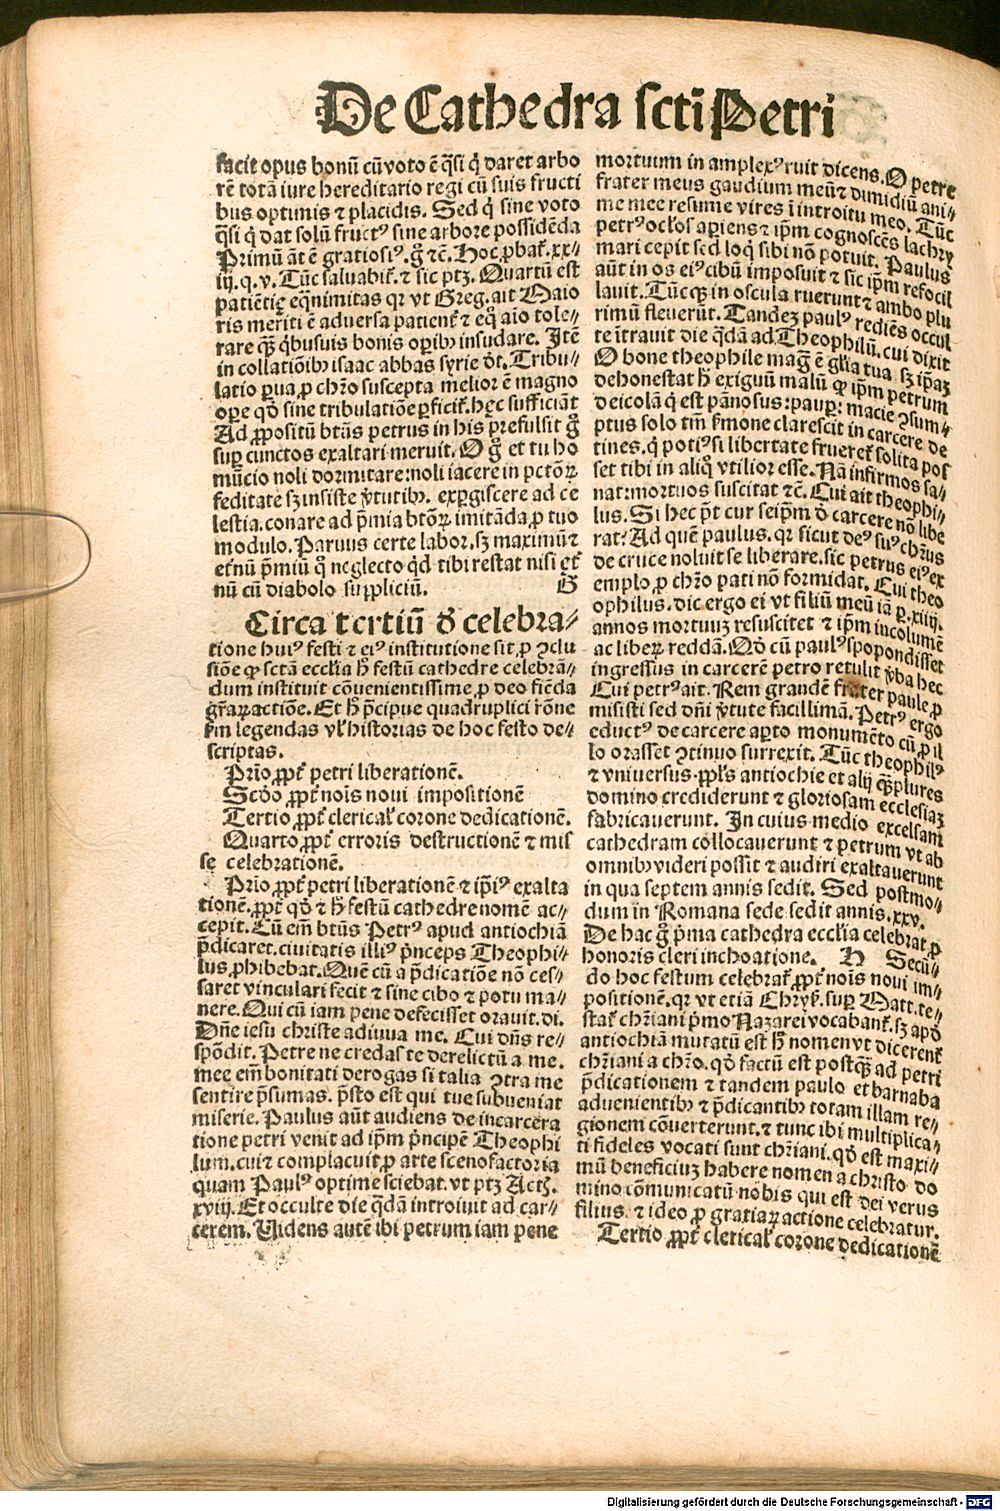 De Cathedra scti Petri
facit opus bonũ cũ voto ẽ q̃si q̇ daret arbo
rẽ totã iure hereditario regi cũ suis fructi
bus optimis ⁊ placidis. Sed q̇ sine voto
q̃si q̇ dat solũ fructꝰ sine arbore possidẽda
Primũ ãt ẽ gratiosiꝰ. g̊ ⁊c̃. Hoc ꝓbat̃. xx-
iij. q. v. Tũc saluabit̃. ⁊ sic ptꝫ. Quartũ est
patiẽtię eq̃nimitas qꝛ vt Greg. ait Maio
ris meriti ẽ aduersa patient̃ ⁊ eq̃ aĩo tole⸗
rare qᷓꝫ q̇busuis bonis oꝑibꝰ insudare. Itẽ
in collatiõibꝰ isaac abbas syrie ðt. Tribu⸗
latio ꝑua ꝓ chr̃o suscepta melior ẽ magno
oꝑe qð sine tribulatiõe ꝑficit̃. hęc sufficiãt
Ad ꝓpositũ btũs petrus in his p̃refulsit g̊
suꝑ cunctos exaltari meruit. O g̊ et tu ho
mũcio noli dormitare: noli iacere in pctõꝝ
feditate sꝫ insiste ṽtutibꝰ. exꝑgiscere ad ce
lestia. conare ad p̃mia btõꝝ imitãda ꝓ tuo
modulo. Paruus certe labor. sꝫ maximũ ⁊
et̃nũ p̃miũ q̊ neglecto qd tibi restat nisi et̃
nũ cũ diabolo suppliciũ. G
Circa tertiũ ð celebra⸗
tione huiꝰ festi ⁊ eiꝰ institutione sit ꝓ ꝯclu
siõe ꝙ sctã eccl̃ia h̃ festũ cathedre celebrã⸗
dum instituit cõuenientissime ꝓ deo fiẽda
gr̃aꝝ actiõe. Et h̃ p̃cipue quadruplici rõne
s̃m legendas vl̃ historias de hoc festo de⸗
scriptas.
Prio ꝓpt̃ petri liberationẽ.
Scðo ꝓpt̃ noĩs noui impositionẽ
Tertio ꝓpt̃ clerical̃ corone dedicationẽ.
Quarto ꝓpt̃ erroris destructionẽ ⁊ mis
se celebrationẽ.
Prio ꝓpt̃ petri liberationẽ ⁊ ip̃iꝰ exalta
tionẽ. ꝓpt̃ qð ⁊ h̃ festũ cathedre nomẽ ac⸗
cepit. Cũ em̃ btũs Petrꝰ apud antiochiã
p̃dicaret. ciuitatis illiꝰ p̃nceps Theophi⸗
lus ꝓhibebat. Quẽ cũ a p̃dicatiõe nõ ces⸗
saret vinculari fecit ⁊ sine cibo ⁊ potu ma⸗
nere. Qui cũ iam pene defecisset orauit. di.
Dñe iesu christe adiuua me. Cui dñs re⸗
spõdit. Petre ne credas te derelictũ a me.
mee em̃ bonitati derogas si talia ꝯtra me
sentire p̃sumas. p̃sto est qui tue subueniat
miserie. Paulus aũt audiens de incarcera
tione petri venit ad ip̃m p̃ncipẽ Theophi
lum. cui ⁊ complacuit ꝓ arte scenofactoria
quam Paulꝰ optime sciebat. vt ptꝫ Act.
xviij. Et occulte die q̃dã introiuit ad car⸗
cerem. Uidens autẽ ibi petrum iam pene
mortuum in amplexꝰ ruit dicens. O petre
frater meus gaudium meũ ⁊ dimidiũ ani⸗
me mee resume vires ĩ introitu meo. Tũc
petrꝰ ocl̃os aꝑiens ⁊ ip̃m cognoscẽs lachry
mari cepit sed loq̇ sibi nõ potuit. Paulus
aũt in os eiꝰ cibũ imposuit ⁊ sic ip̃m refocil
lauit. Tũcqꝫ in oscula ruerunt ⁊ ambo plu
rimũ fleuerũt. Tandeꝫ paulꝰ rediẽs occul
te ĩtrauit die q̃dã ad Theophilũ. cui dixit
O bone theophile mag̃ ẽ gl̃ia tua sꝫ ip̃aꝫ
dehonestat h̃ exiguũ malũ ꝙ ip̃m petrum
deicolã q̇ est pãnosus: pauꝑ: macie ꝯsum⸗
ptus solo tm̃ s̃mone clarescit in carcere de
tines. q̇ potiꝰ si libertate frueret̃ solita pos
set tibi in aliq̊ vtilior esse. Nã infirmos sa⸗
nat: mortuos suscitat ⁊c̃. Cui ait theophi⸗
lus. Si hec p̃t cur seip̃m ð carcere nõ libe
rat: Ad quẽ paulus. qꝛ sicut deꝰ suꝰ chr̃us
de cruce noluit se liberare. sic petrus eiꝰ ex
emplo ꝓ chr̃o pati nõ formidat. Cui theo
ophilus. dic ergo ei vt filiũ meũ iã ꝑ. xiiij.
annos mortuuꝫ resuscitet ⁊ ip̃m incolumẽ
ac liberꝝ reddã. Qð cũ paulꝰ spopondisset
ingressus in carcerẽ petro retulit ṽba hec
Cui petrꝰ ait. Rem grandẽ frater paule ꝓ
misisti sed dñi ṽtute facillimã. Petrꝰ ergo
eductꝰ de carcere aꝑto monumẽto cũ ꝓ il
lo orasset ꝯtinuo surrexit. Tũc theophilꝰ
⁊ vniuersus ppl̃s antiochie et alij qᷓꝫplures
domino crediderunt ⁊ gloriosam ecclesiaꝫ
fabricauerunt. In cuius medio excelsam
cathedram collocauerunt ⁊ petrum vt ab
omnibꝰ videri possit ⁊ audiri exaltauerunt
in qua septem annis sedit. Sed postmo⸗
dum in Romana sede sedit annis. xxv.
De hac g̊ p̃ma cathedra eccl̃ia celebrat ꝓ
honoris cleri inchoatione. H Secũ⸗
do hoc festum celebrat̃ ꝓpt̃ noĩs noui im⸗
positionẽ. qꝛ vt etiã Chryſ. suꝑ Matt. te⸗
stat̃ chr̃iani p̃mo Nazarei vocabant̃. sꝫ apð
antiochiã mutatũ est h̃ nomen vt dicerent̃
chr̃iani a chr̃o. qð factũ est postqᷓꝫ ad petri
p̃dicationem ⁊ tandem paulo et barnaba
aduenientibꝰ ⁊ p̃dicantibꝰ totam illam re⸗
gionem cõuerterunt. ⁊ tunc ibi multiplica⸗
ti fideles vocati sunt chr̃iani. qð est maxi⸗
mũ beneficiuꝫ habere nomen a christo do
mino cõmunicatũ nobis qui est dei verus
filius. ⁊ ideo ꝓ gratiaꝝ actione celebratur.
Tertio ꝓpt̃ clerical̃ corone dedicationẽ
Digitalisierung gefördert durch die Deutsche Forschungsgemeinschaft - DFG